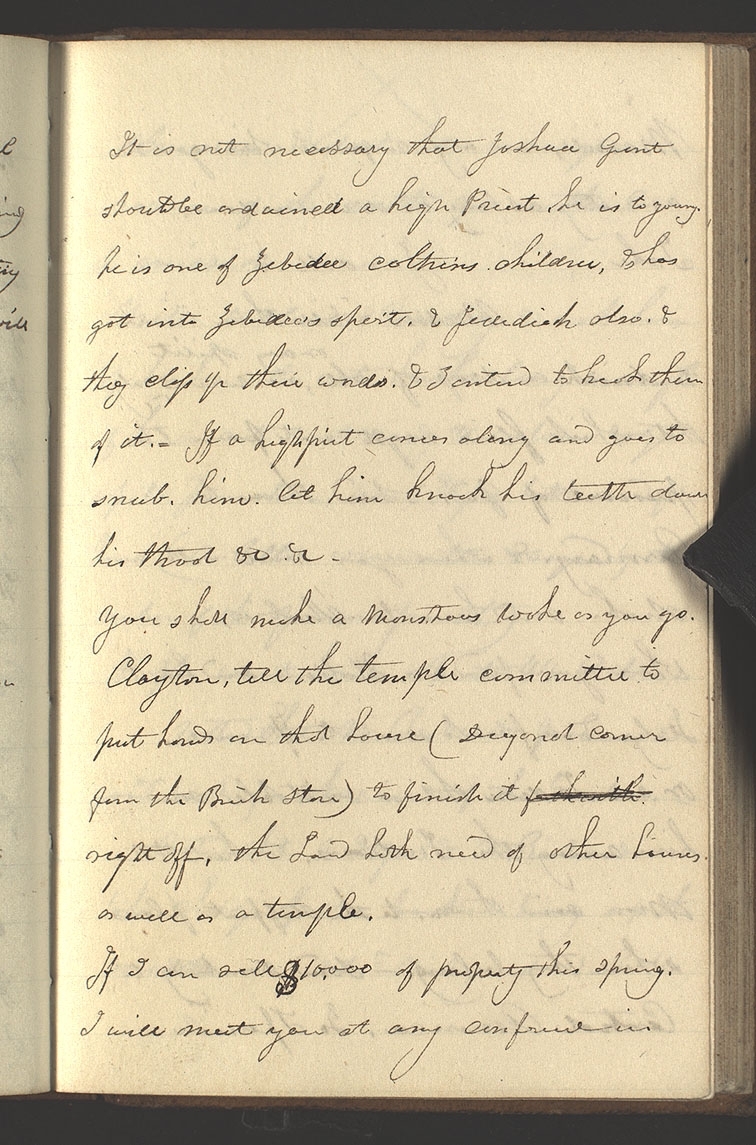 It is not necessary that Joshua Grant
should be ordained a high Priest he is to young.
he is one of Zebedee coltrins children, & has
got into Zebedee's spirit. & Jedediah also. &
they clip up their words. & I intend to break them
of it.= If a high prist comes along and goes to
snub. him. let him knock his teeth down
his throt &c &c -
You shall make a monstrous wake as you go.
Clayton, tell the temple committee to
put hands on that house (Diagonal corner
from the Brick store) to finish it forthwith.
right off, the Lord hath need of other houses.
as well as a temple.
If I can sell $10.000 of property this spring.
I will meet you at any confrence in